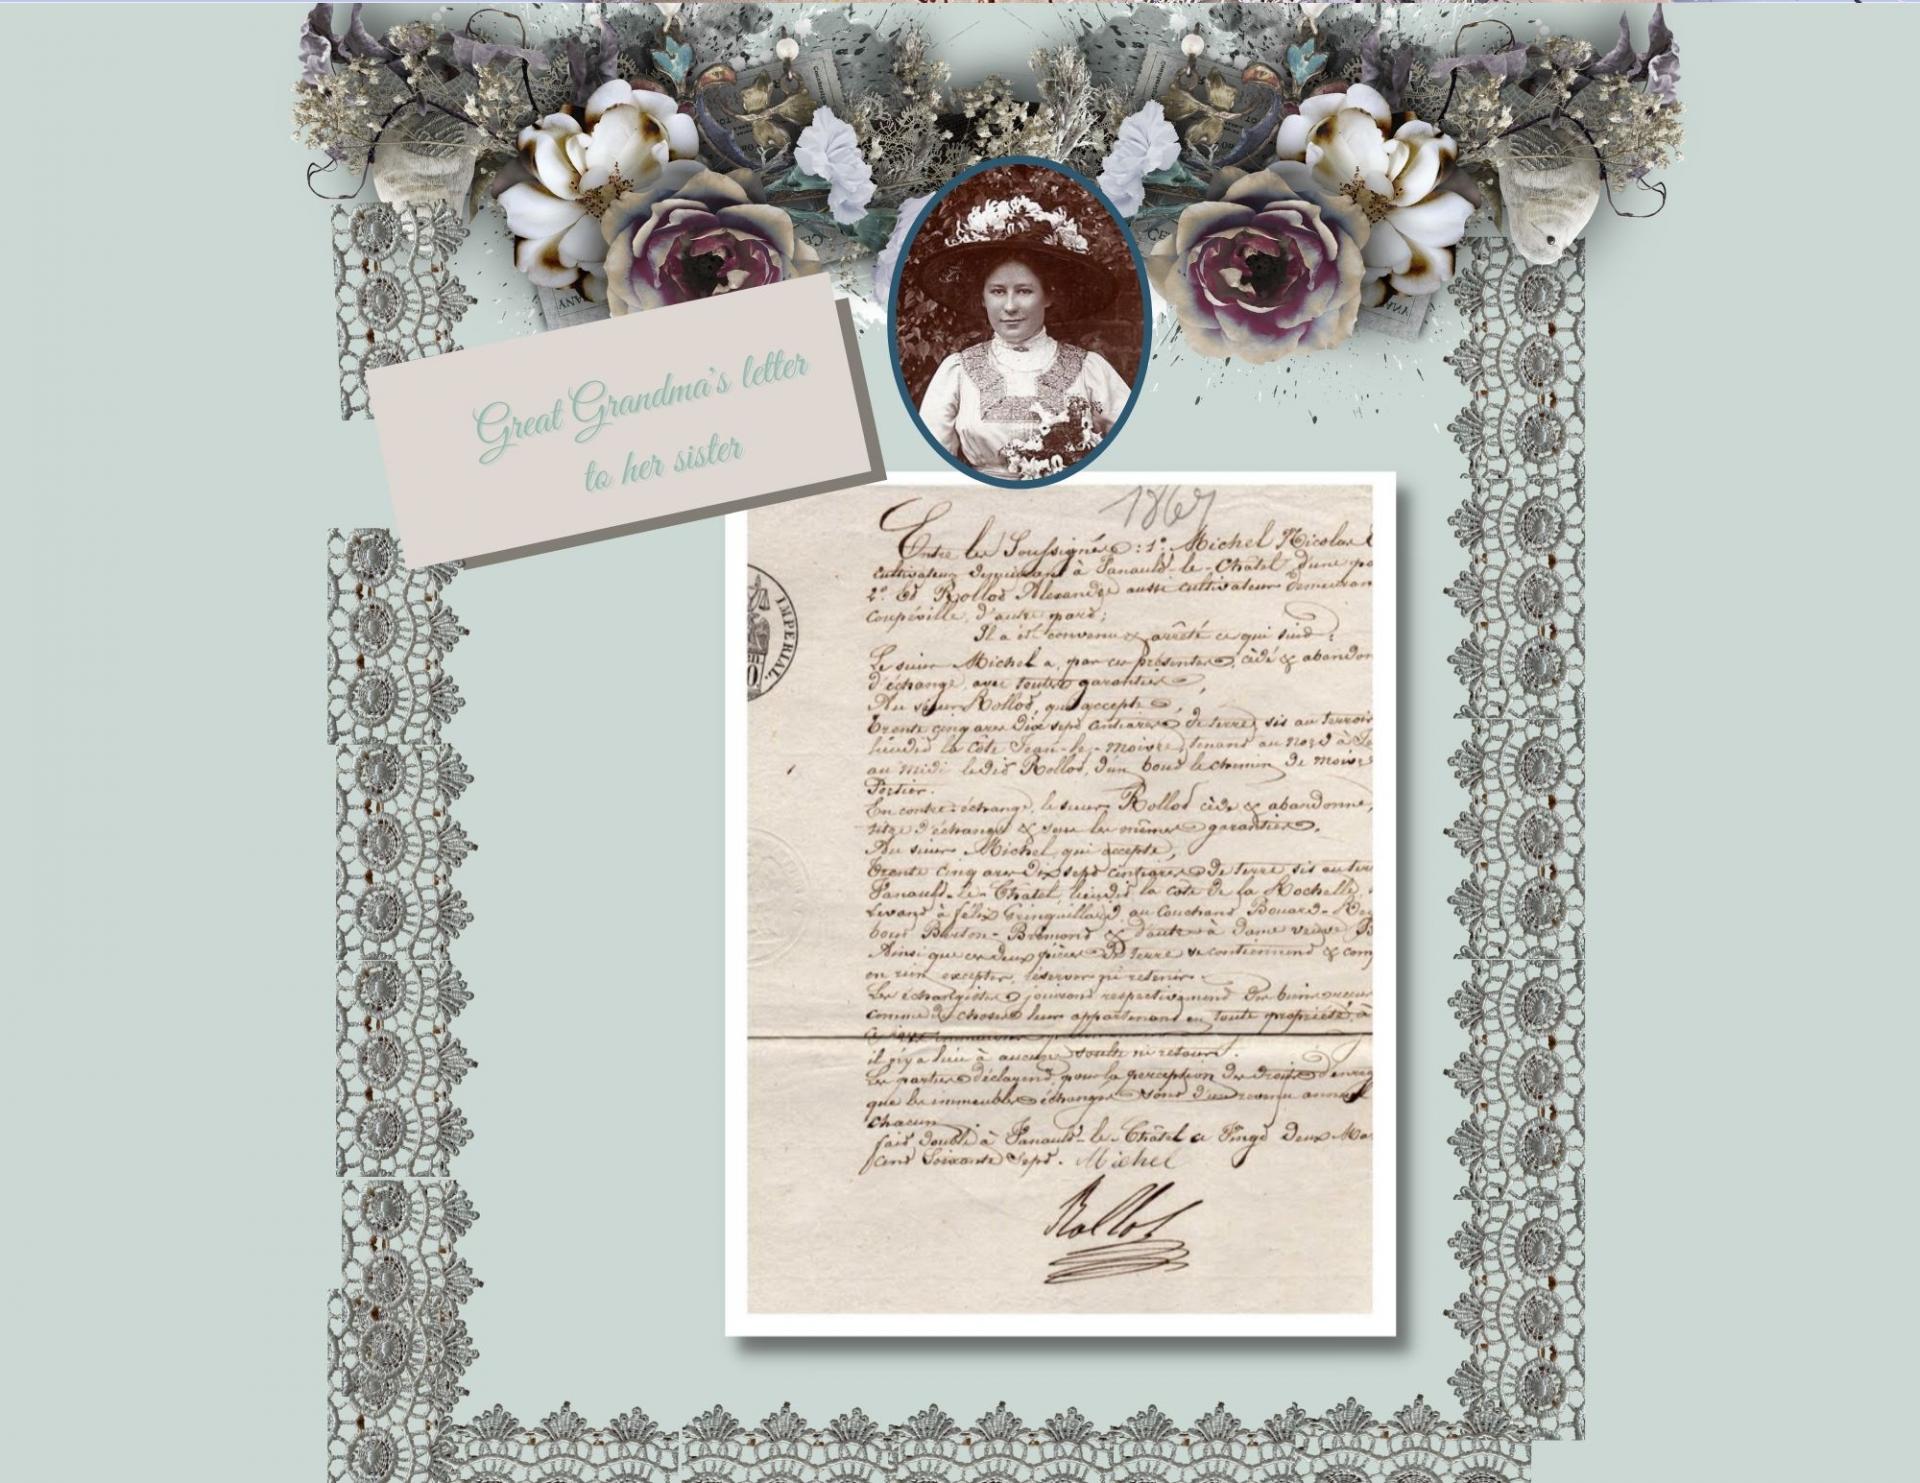 Great Grandma's letter
to her sister
1867
Entre les Soussignés : 1° Michel Nicolas
cultivateur demeurant à Panault-le-Chatel d'une
2° Et Rollot Alexandre aussi cultivateur demeuran
Coupéville, d'autre part;
Il a été convenu & arrêté ce qui suit :
IMPERIAL.
Le sieur Michel a, par ces présentes, cédé & abandon
d'échange, avec toutes garanties,
Au sieur Rollot, qui accepte,
Trente cinq ares dix sept centiares de terre, sis au terroir
lieudit la Côte Jean-le-Moivre, tenant au nord à
au midi ledit Rollot, d'un bout le chemin de moivre
Portier.
En contre-échange, le sieur Rollot cède & abandonne,
titre d'échange & sous les mêmes garanties,
Au sieur Michel, qui accepte,
Trente cinq ares dix sept centiares de terre sis au terr
Panault-le-Chatel, lieudit la côte de la Rochelle,
Levant à félix Grinquillard au Couchant Bouard-
bout Barton-Brémont & d'autre à dame veuve
Ainsi que ces deux pièces de terre se contiennent & com
en rien excepter, réserver ni retenir.
Les échangistes jouiront respectivement des biens
comme de choses leur appartenant en toute propriété, à
il n'y a lieu à aucune soulte ni retour.
Les parties déclarent, pour la perception des droits d'enreg
que les immeubles échangés sont d'un revenu annuel
chacun
fait double à Panault-le-Châtel ce Vingt deux
cent Soixante Sept. Michel
Rollot